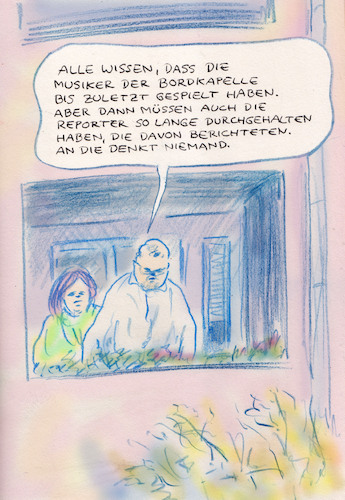 ALLE WISSEN, DASS DIE
MUSIKER DER BORDKAPELLE
BIS ZULETZT GESPIELT HABEN.
ABER DANN MÜSSEN AUCH DIE
REPORTER SO LANGE DURCHGEHALTEN
HABEN, DIE DAVON BERICHTETEN.
AN DIE DENKT NIEMAND.